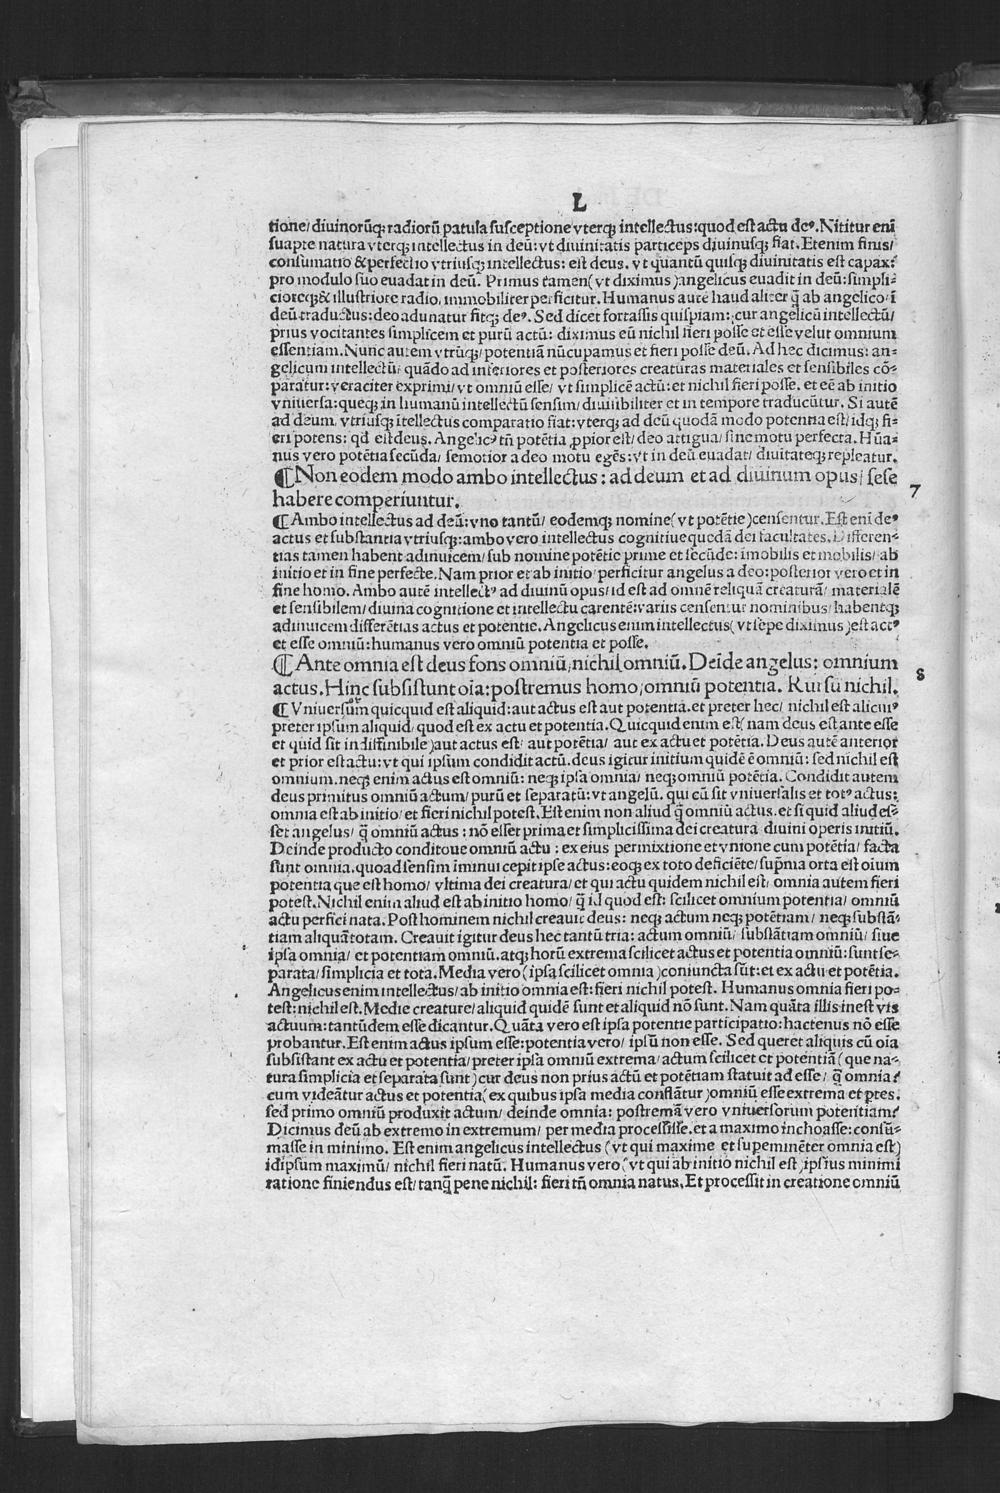 L
tione/ diuinorū꙳ radiorū patula susceptione vterq꙳ intellectus: quod est actu deꝰ. Nititur eni
suapte natura vterq꙳ intellectus in deū: vt diuinitatis particeps diuinusq꙳ fiat. Etenim finis/
consumatio & perfectio vtriusq꙳ intellectus: est deus. vt quantū quisq꙳ diuinitatis est capax:
pro modulo suo euadat in deū. Primus tamen (vt diximus) angelicus euadit in deū: simpli-
cioreq꙳ & illustriore radio, immobiliter perficitur. Humanus autē haud aliter q̄ ab angelico ī
deū traductus: deo adunatur fitq꙳ deꝰ. Sed dicet fortassis quispiam: cur angelicū intellectū/
prius vocitantes simplicem et purū actū: diximus eū nichil fieri posse et esse velut omnium
essentiam. Nunc autem vtrūq꙳/ potentiā nūcupamus et fieri posse deū. Ad hec dicimus: an=
gelicum intellectū/ quādo ad inferiores et posteriores creaturas materiales et sensibiles cō-
paratur: veraciter exprimi/ vt omniū esse/ vt simplicē actū: et nichil fieri posse. et eē ab initio
vniuersa: queq꙳ in humanū intellectū sensim/ diuisibiliter et in tempore traducūtur. Si autē
ad deum, vtriusq꙳ ītellectus comparatio fiat: vterq꙳ ad deū quodā modo potentia est/ idq꙳ fi=
eri potens: qd est deus. Angelicꝰ tn̄ potētia ꝓpior est/ deo attigua/ sine motu perfecta. Hūa=
nus vero potētia secūda/ semotior a deo motu egēs: vt in deū euadat/ diuitateq꙳ repleatur.
¶ Non eodem modo ambo intellectus: ad deum et ad diuinum opus/ sese
habere comperiuntur. 7
¶ Ambo intellectus ad deū: vno tantū/ eodemq꙳ nomine (vt potētie) censentur. Est eni deꝰ
actus et substantia vtriusq꙳: ambo vero intellectus cognitiue quedā dei facultates. Differen-
tias tamen habent adinuicem/ sub nomine potētie prime et secūde: imobilis et mobilis/ ab
initio et in fine perfecte. Nam prior et ab initio perficitur angelus a deo: posterior vero et in
fine homo. Ambo autē intellectꝰ ad diuinū opus/ id est ad omnē reliquā creaturā/ materialē
et sensibilem/ diuina cognitione et intellectu carentē: variis censentur nominibus/ habentq꙳
adinuicem differētias actus et potentie. Angelicus enim intellectus (vt sepe diximus) est actꝰ
et esse omniū: humanus vero omniū potentia et posse.
¶ Ante omnia est deus fons omniū, nichil omniū. Deīde angelus: omnium 8
actus. Hinc subsistunt oīa: postremus homo, omniū potentia. Rursū nichil.
¶ Vniuersum quicquid est aliquid: aut actus est aut potentia. et preter hec/ nichil est alicuiꝰ
preter ipsum aliquid/ quod est ex actu et potentia. Quicquid enim est (nam deus est ante esse
et quid sit indiffinibile) aut actus est/ aut potētia/ aut ex actu et potētia. Deus autē anterior
et prior est actu: vt qui ipsum condidit actū. deus igitur initium quidē ē omniū: sed nichil est
omnium. neq꙳ enim actus est omniū: neq꙳ ipsa omnia/ neq꙳ omniū potētia. Condidit autem
deus primitus omniū actum/ purū et separatū: vt angelū. qui cū sit vniuersalis et totꝰ actus:
omnia est ab initio/ et fieri nichil potest. Est enim non aliud q̄ omniū actus. et si quid aliud es-
set angelus/ q̄ omniū actus: nō esset prima et simplicissima dei creatura diuini operis initiū.
Deinde producto conditoue omniū actu: ex eius permixtione et vnione cum potētia/ facta
sunt omnia. quoad sensim iminui cepit ipse actus: eoq꙳ ex toto deficiēte/ supr̄ma orta est oium
potentia que est homo/ vltima dei creatura/ et qui actu quidem nichil est/ omnia autem fieri
potest. Nichil enim aliud est ab initio homo/ q̄ id quod est: scilicet omnium potentia/ omniū
actu perfici nata. Post hominem nichil creauit deus: neq꙳ actum neq꙳ potētiam/ neq꙳ substā-
tiam aliquā totam. Creauit igitur deus hec tantū tria: actum omniū/ substātiam omniū/ siue
ipsa omnia/ et potentiam omniū. atq꙳ horū extrema scilicet actus et potentia omniū: sunt se-
parata/ simplicia et tota. Media vero (ipsa scilicet omnia) coniuncta sūt: et ex actu et potētia.
Angelicus enim intellectus/ ab initio omnia est: fieri nichil potest. Humanus omnia fieri po=
test: nichil est. Medie creature/ aliquid quidē sunt et aliquid nō sunt. Nam quāta illis inest vis
actuum: tantūdem esse dicantur. Quāta vero est ipsa potentie participatio: hactenus nō esse
probantur. Est enim actus ipsum esse: potentia vero/ ipsū non esse. Sed queret aliquis cū oīa
subsistant ex actu et potentia/ preter ipsa omniū extrema/ actum scilicet et potentiā (que na-
tura simplicia et separata sunt) cur deus non prius actū et potētiam statuit ad esse/ q̄ omnia?
cum videātur actus et potentia (ex quibus ipsa media conflātur) omniū esse extrema et ptes.
sed primo omniū produxit actum/ deinde omnia: postremā vero vniuersorum potentiam?
Dicimus deū ab extremo in extremum/ per media processisse. et a maximo inchoasse: consū-
masse in minimo. Est enim angelicus intellectus (vt qui maxime et supeminēter omnia est)
idipsum maximū/ nichil fieri natū. Humanus vero (vt qui ab initio nichil est) ipsius minimi
ratione finiendus est/ tanq̄ pene nichil: fieri tn̄ omnia natus. Et processit in creatione omniū